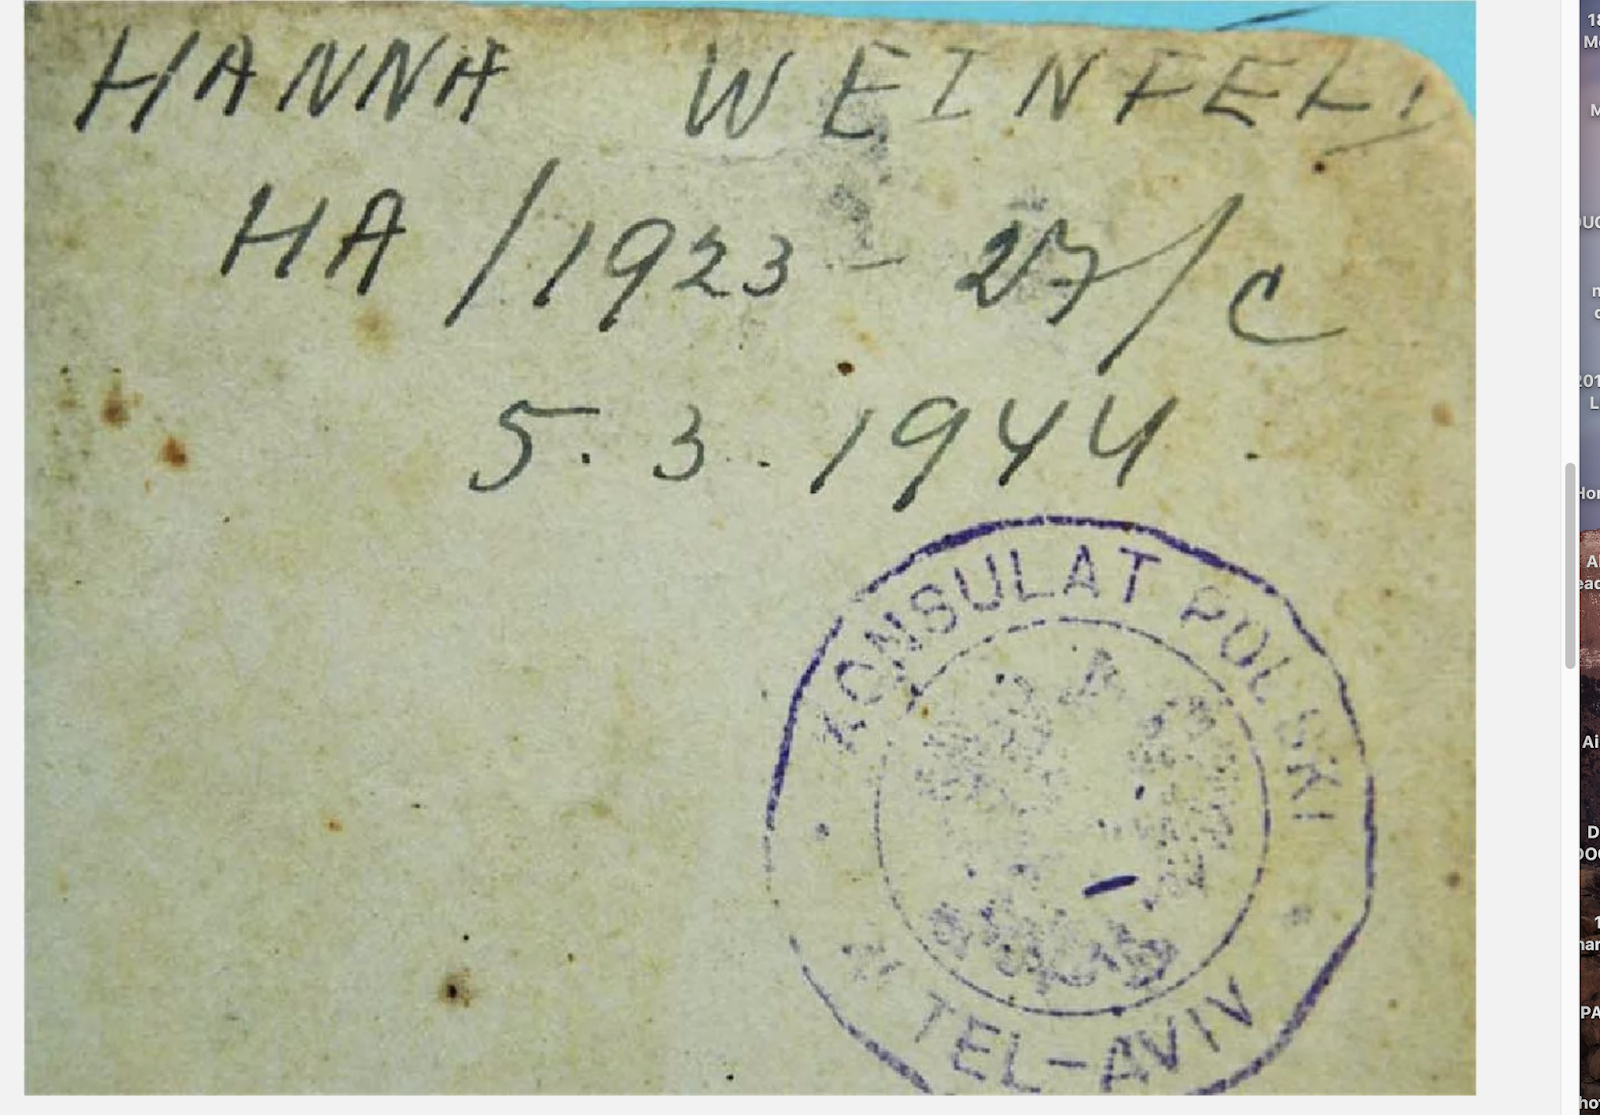 HANNA WEINFEL
HA/1923 - 27/C
5.3.1944.
KONSULAT POLSKI
TEL-AVIV